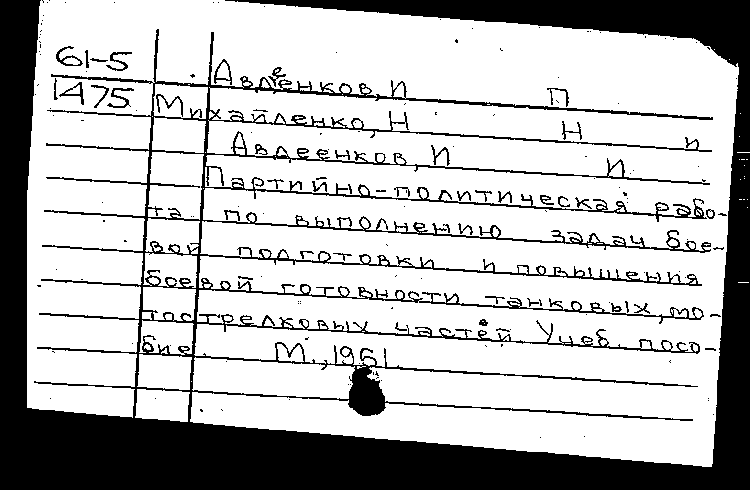 61-5
Авдеенков, И П
1475
Михайленко, Н Н и
Авдеенков, И И
Партийно-политическая рабо-
та по выполнению задач бое-
вой подготовки и повышения
боевой готовности танковых, мо-
тострелковых частей Учеб. посо-
бие. М., 1961.